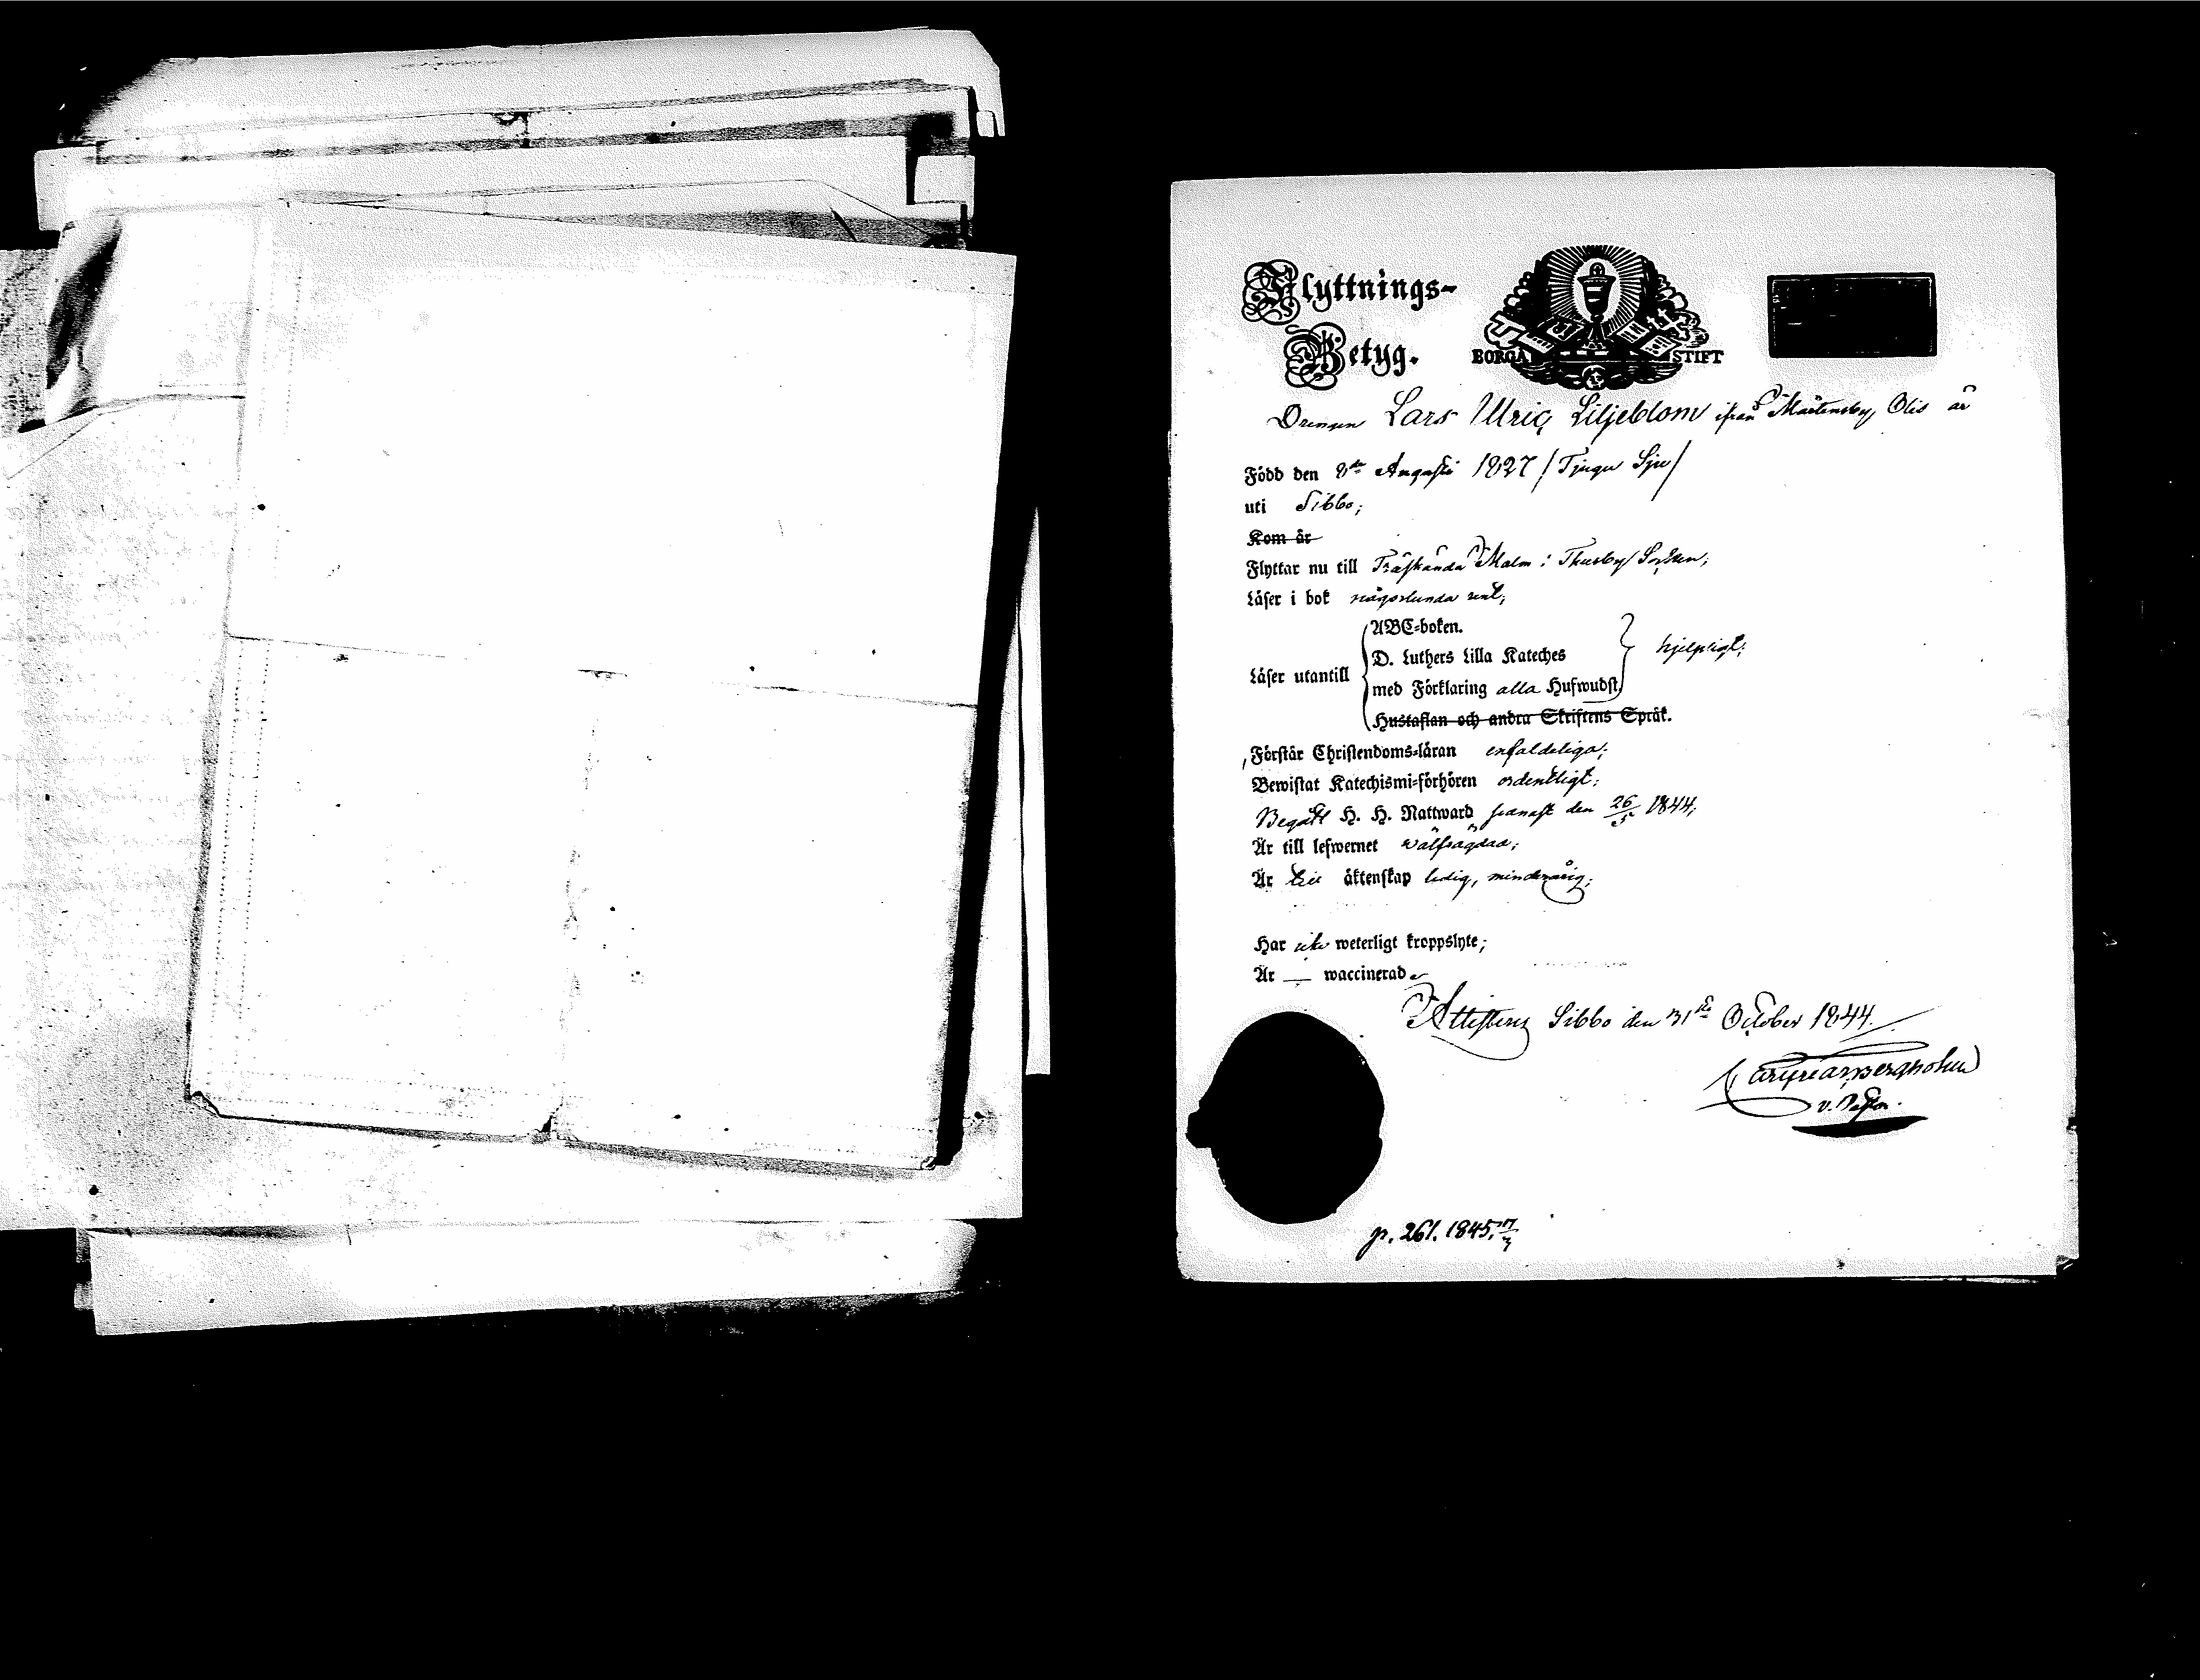 Flyttnings-
Betyg.
BORGÅ STIFT
Drengen Lars Ulric Liljeblom ifrån Mårtensby Olis är
Född den 8de Augusti 1827 /Tjugu Sju/
uti Sibbo;
Kom år
Flyttar nu till Träskända Malm i Thusby Socken;
Läser i bok någorlunda rent;
Läser utantill
ABC-boken.
D. Luthers Lilla Kateches
med Förklaring alla Hufwudst.
hjelpligt;
Hustaflan och andra Skriftens Språk.
Förstår Christendoms-läran enfaldeliga;
Bewistat Katechismi-förhören ordentligt;
Begått H. H. Nattward senast den 26/5 1844;
Är till lefwernet wälfrägdad;
Är till äktenskap ledig, minderårig;
Har icke weterligt kroppslyte;
Är — waccinerad
Attesteras Sibbo den 31ste October 1844.
Bergholm
v. Pastor.
p. 261. 1845.